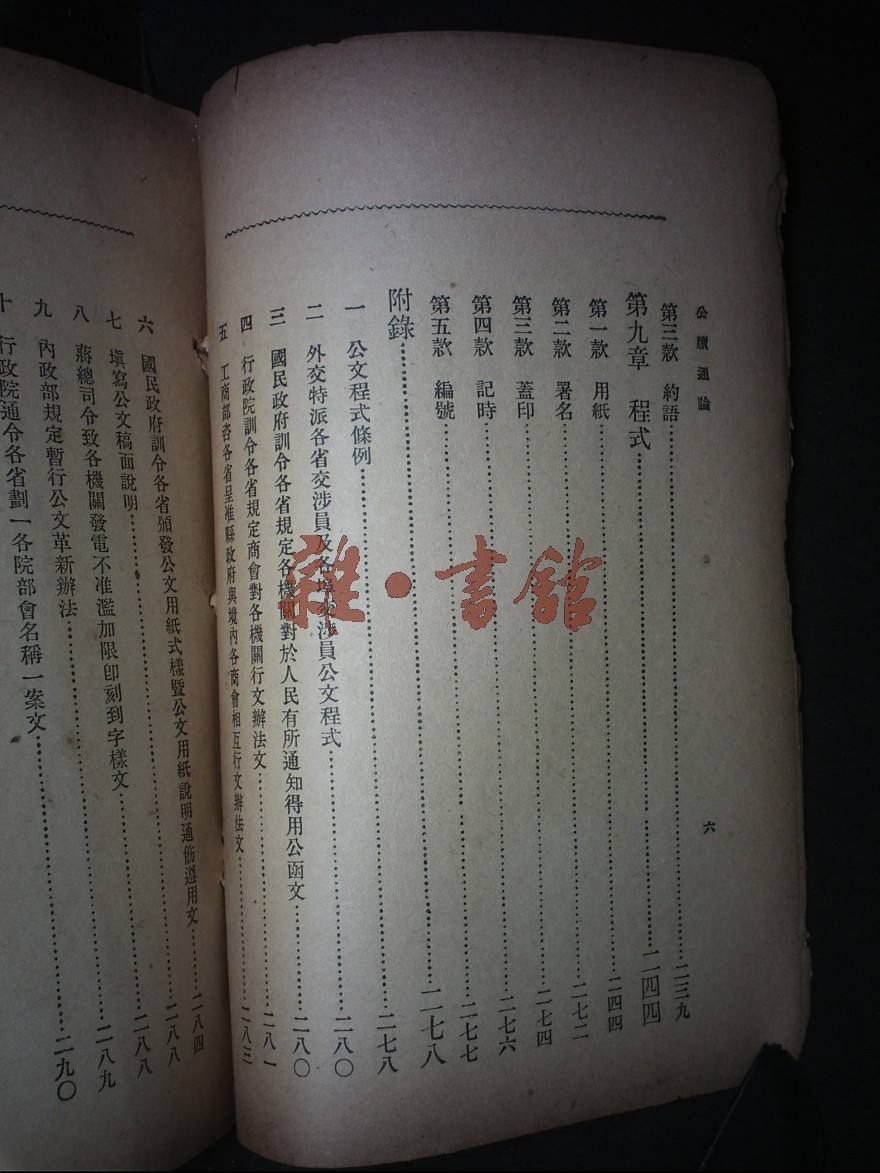 公牘通論 六
第三款 約語……二三九
第九章 程式……二四四
第一款 用紙……二四四
第二款 署名……二七二
第三款 蓋印……二七四
第四款 記時……二七六
第五款 編號……二七七
附錄……二七八
一 公文程式條例……二七八
二 外交特派各省交涉員及各埠交涉員公文程式……二八〇
三 國民政府訓令各省規定各機關對於人民有所通知得用公函文……二八〇
四 行政院訓令各省規定商會對各機關行文辦法文……二八一
五 工商部咨各省呈准縣政府與境內各商會相互行文辦法文……二八三
六 國民政府訓令各省頒發公文用紙式樣暨公文用紙說明通飭遵用文……二八四
七 填寫公文稿面說明……二八八
八 蔣總司令致各機關發電不准濫加限卽刻到字樣文……二八八
九 內政部規定暫行公文革新辦法……二八九
十 行政院通令各省劃一各院部會名稱一案文……二九〇
雜·書館